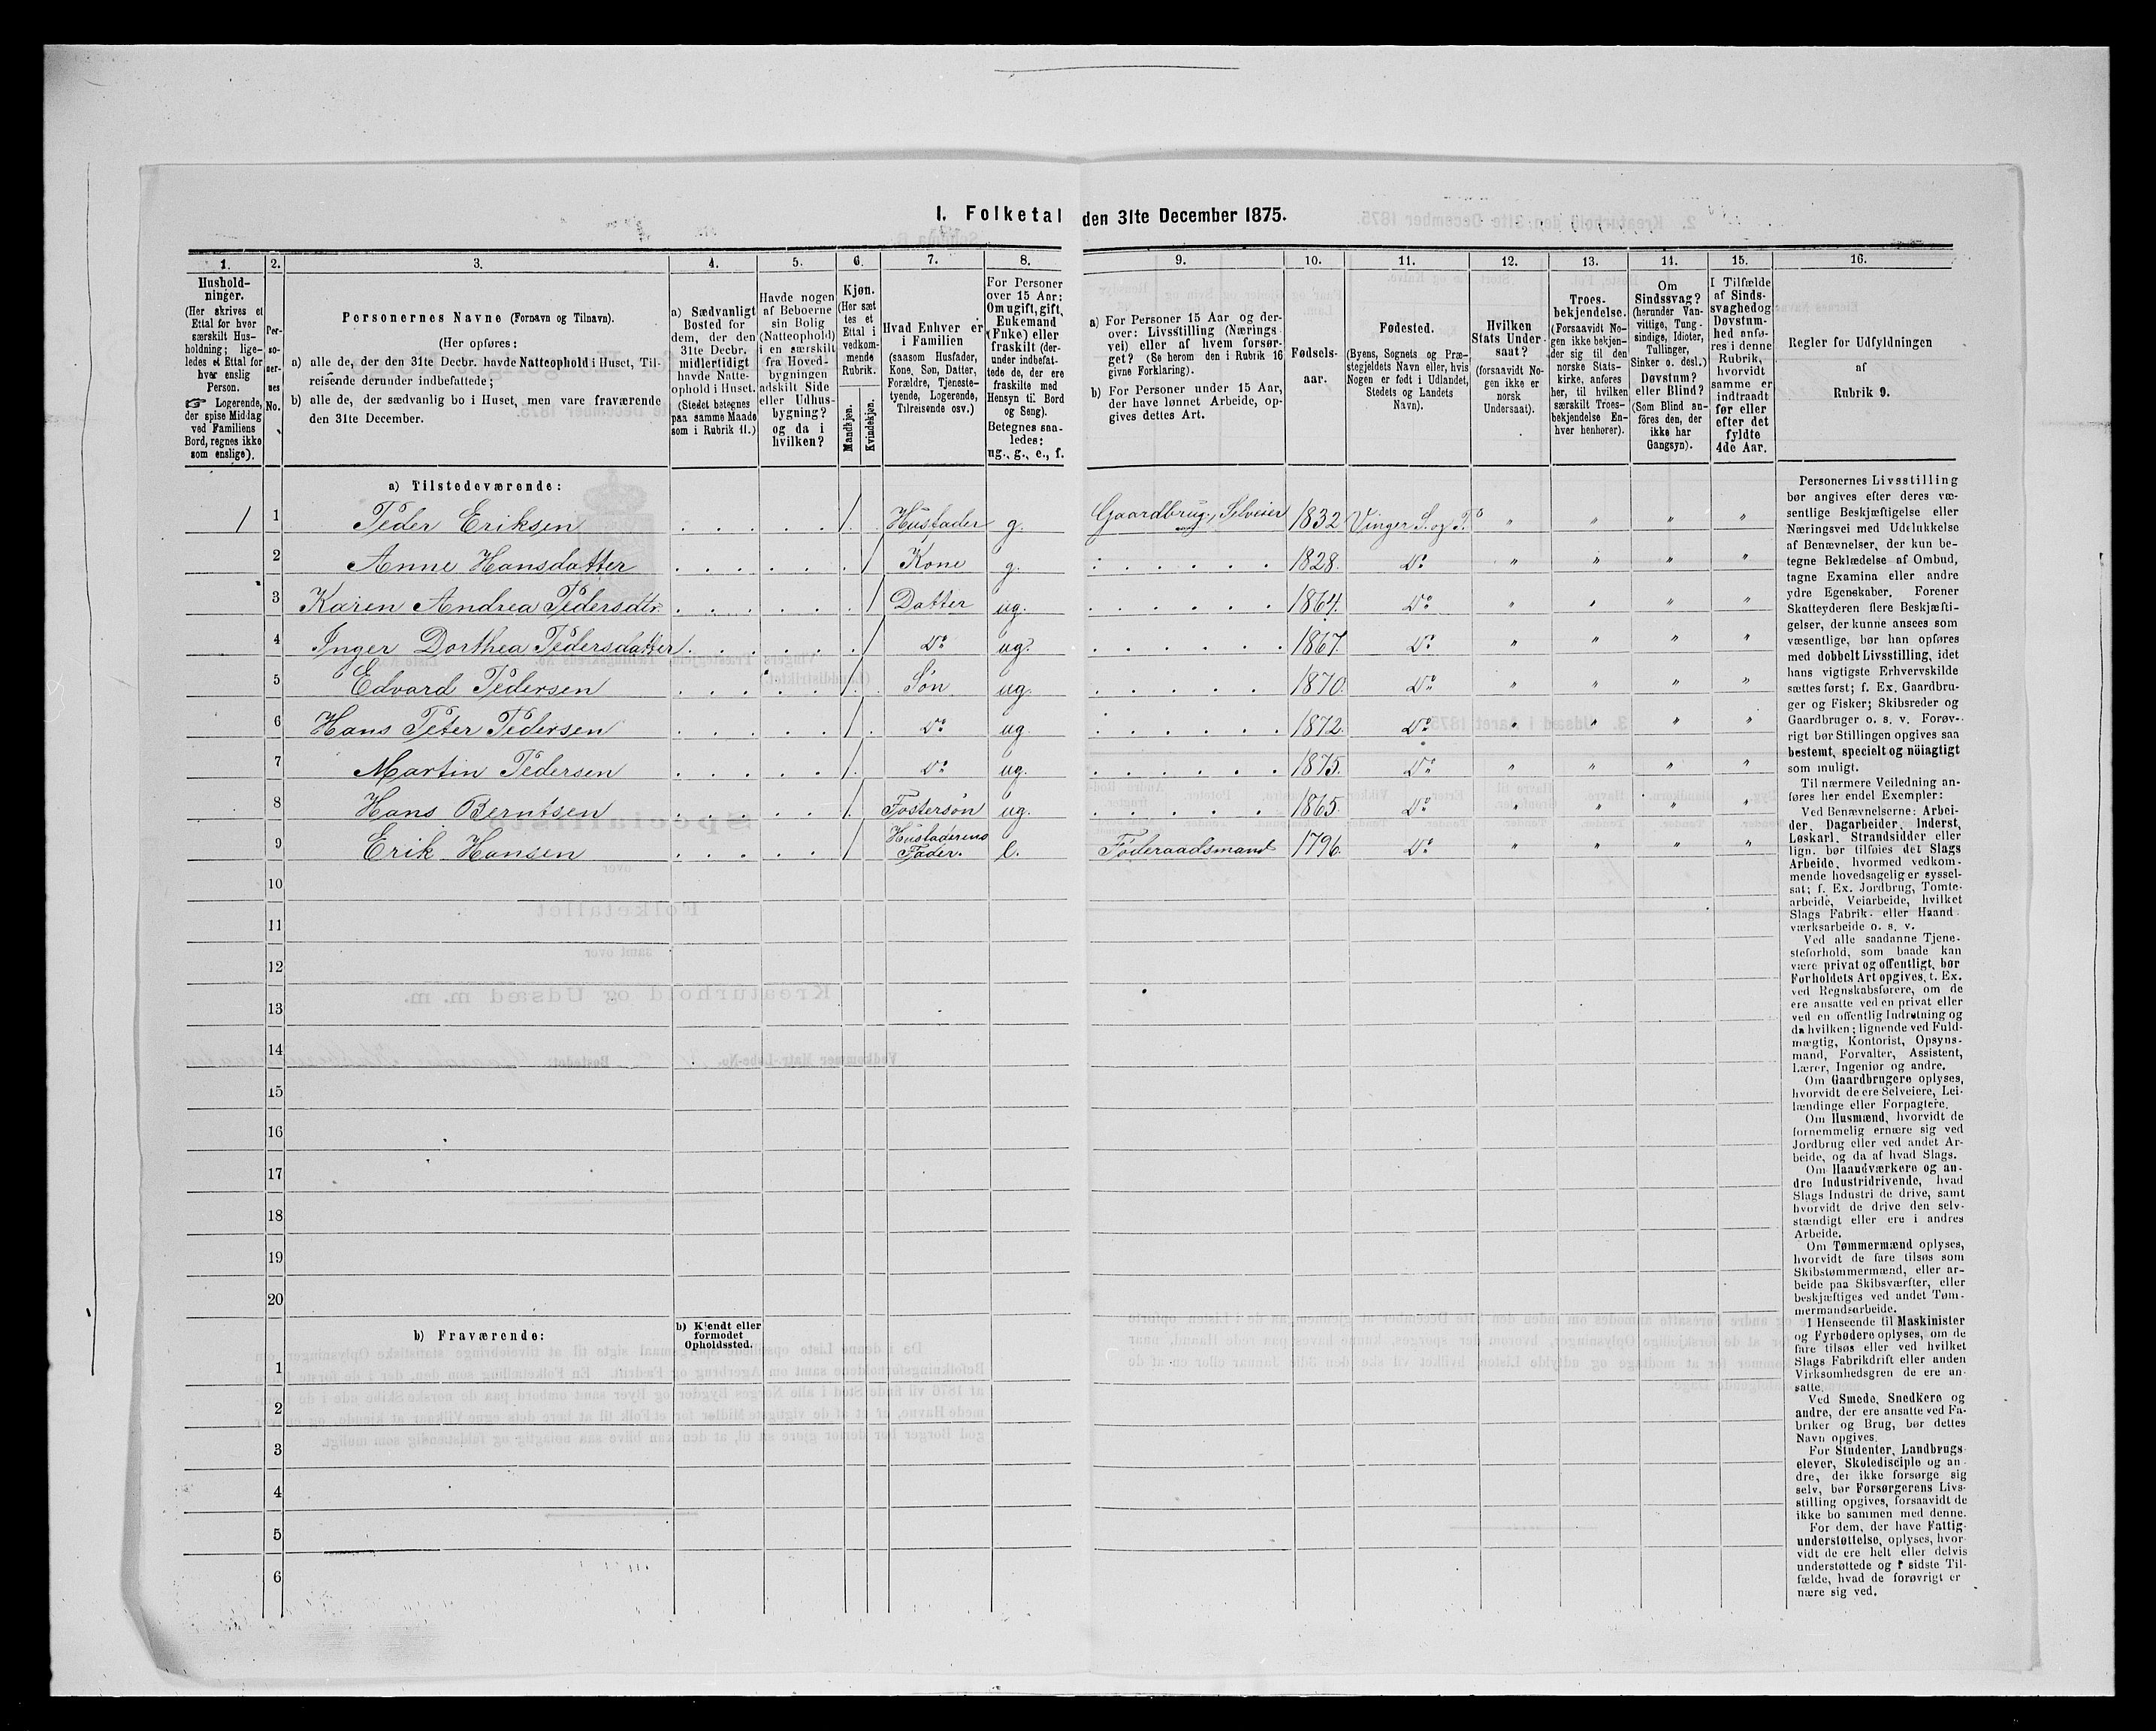 1. Folketal den 31te December 1875.
1. 2. 3. 4. 5. 6. 7. 8. 9. 10. 11. 12. 13. 14. 15. 16.
Hushold-
ninger.
(Her skrives et
Ettal for hver
særskilt Hus-
holdning; lige-
ledes et Ettal for
hver enslig
Person.
☞ Logerende,
der spise Middag
ved Familiens
Bord, regnes ikke
som enslige).
Per-
so-
ner-
nes
No.
Personernes Navne (Fornavn og Tilnavn).
(Her opføres:
a) alle de, der den 31te Decbr. havde Natteophold i Huset, Til-
reisende derunder indbefattede;
b) alle de, der sædvanlig bo i Huset, men vare fraværende
den 31te December.
a) Sædvanligt
Bosted for
dem, der den
31te Decbr.
midlertidigt
havde Natte-
ophold i Huset.
(Stedet betegnes
paa samme Maade
som i Rubrik 11.)
Havde nogen
af Beboerne
sin Bolig
(Natteophold)
i en særskilt
fra Hoved-
bygningen
adskilt Side
eller Udhus-
bygning?
og da i
hvilken?
Kjøn.
(Her sæt
tes et
Ettal i
vedkom-
mende
Rubrik.
Mandkjøn.
Kvindekjøn.
Hvad Enhver er
i Familien
(saasom Husfader,
Kone, Søn, Datter,
Forældre, Tjeneste-
tyende, Logerende,
Tilreisende osv.)
For Personer
over 15 Aar:
Om ugift, gift,
Enkemand
(Enke) eller
fraskilt (der-
under indbefat-
tede de, der ere
fraskilte med
Hensyn til Bord
og Seng).
Betegnes saa-
ledes:
ug., g., e., f.
a) For Personer 15 Aar og der-
over: Livsstilling (Nærings
vei) eller af hvem forsør-
get? (Se herom den i Rubrik 16
givne Forklaring).
b) For Personer under 15 Aar,
der have lønnet Arbeide, op-
gives dettes Art.
Fødsels-
aar.
Fødested.
(Byens, Sognets og Præ-
stegjeldets Navn eller, hvis
Nogen er født i Udlandet,
Stedets og Landets
Navn).
Hvilken
Stats Under-
saat?
(forsaavidt No-
gen ikke er
norsk
Undersaat).
Troes-
bekjendelse.
(Forsaavidt No-
gen ikke bekjen-
der sig til den
norske Stats-
kirke, anføres
her, til hvilken
særskilt Troes-
bekjendelse En-
hver henhører).
Om
Sindssvag?
(herunder Van-
vittige, Tung-
sindige, Idioter,
Tullinger,
Sinker o. desl.)
Døvstum?
eller Blind?
(Som Blind an-
føres den, der
ikke har
Gangsyn).
I Tilfælde
af Sinds-
svaghed og
Døvstum-
hed anfø-
res i denne
Rubrik,
hvorvidt
samme er
indtraadt
før eller
efter det
fyldte
4de Aar.
Regler for Udfyldningen
af
Rubrik 9.
a) Tilstedeværende:
1 1 Peder Eriksen 1. Husfader g. Gaardbrug., Selveier 1832 Vinger S. og P. " " " "
2 Anne Hansdatter 1 Kone g. 1828. Do " " " "
3 Karen Andrea Pedersdtr. 1 Datter ug. 1864. Do " " " "
4 Inger Dorthea Pedersdatter 1 Do ug. 1867. Do " " " "
5 Edvard Pedersen 1. Søn ug. 1870. Do " " " "
6 Hans Peter Pedersen 1 Do ug. 1872. Do " " " "
7 Martin Pedersen 1. Do ug. 1875. Do " " " "
8 Hans Berntsen 1. Fostersøn ug. 1865. Do " " " "
9 Erik Hansen 1 Husfaderens Fader. e. Føderaadsmand 1796. Do " " " "
10
11
12
13
14
15
16
17
18
19
20
b) Fraværende:
b) Kjendt eller
formodet
Opholdssted.
1
2
3
4
5
6
Personernes Livsstilling
bør angives efter deres væ-
sentlige Beskjæftigelse eller
Næringsvei med Udelukkelse
af Benævnelser, der kun be-
tegne Beklædelse af Ombud,
tagne Examina eller andre
ydre Egenskaber. Forener
Skatteyderen flere Beskjæfti-
gelser, der kunne ansees som
væsentlige, bør han opføres
med dobbelt Livsstilling, idet
hans vigtigste Erhvervskilde
sættes først; f. Ex. Gaardbru-
ger og Fisker; Skibsreder og
Gaardbruger o. s. v. Forøv-
rigt bør Stillingen opgives saa
bestemt, specielt og nöiagtigt
som muligt.
Til nærmere Veiledning an-
føres her endel Exempler:
Ved Benævnelserne: Arbei-
der, Dagarbeider, Inderst,
Løskarl, Strandsidder eller
lign. bør tilføies det Slags
Arbeide, hvormed vedkom-
mende hovedsagelig er syssel-
sat; f. Ex. Jordbrug, Tomte-
arbeide, Veiarbeide, hvilket
Slags Fabrik- eller Haand-
værksarbeide o. s. v.
Ved alle saadanne Tjene-
steforhold, som baade kan
være privat og offentligt, bør
Forholdets Art opgives, f. Ex.
ved Regnskabsførere, om de
ere ansatte ved en privat eller
ved en offentlig Indretning og
da hvilken; lignende ved Fuld-
mægtig, Kontorist, Opsyns-
mand, Forvalter, Assistent,
Lærer, Ingeniør og andre.
Om Gaardbrugere oplyses,
hvorvidt de ere Selveiere, Lei-
lændinge eller Forpagtere.
Om Husmænd, hvorvidt de
fornemmelig ernære sig ved
Jordbrug eller ved andet Ar-
beide, og da af hvad Slags.
Om Haandværkere og an-
dre Industridrivende, hvad
Slags Industri de drive, samt
hvorvidt de drive den selv-
stændigt eller ere i andres
Arbeide.
Om Tømmermænd oplyses,
hvorvidt de fare tilsøs som
Skibstømmermænd, eller ar-
beide paa Skibsværfter, eller
beskjæftiges ved andet Tøm-
mermandsarbeide.
I Henseende til Maskinister
og Fyrbødere oplyses, om de
fare tilsøs eller ved hvilket
Slags Fabrikdrift eller anden
Virksomhedsgren de ere an-
satte.
Ved Smede, Snedkere og
andre, der ere ansatte ved Fa-
briker og Brug, bør dettes
Navn opgives.
For Studenter, Landbrugs-
elever, Skoledisciple og an-
dre, der ikke forsørge sig
selv, bør Forsørgerens Livs-
stilling opgives, forsaavidt de
ikke bo sammen med denne.
For dem, der have Fattig-
understøttelse, oplyses, hvor-
vidt de ere helt eller delvis
understøttede og i sidste Til-
fælde, hvad de forøvrigt er-
nære sig ved.